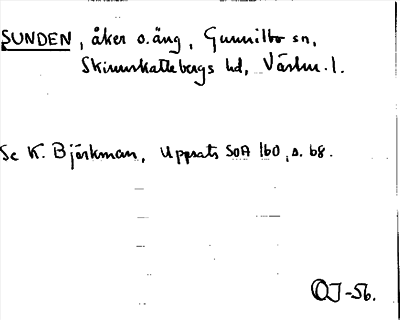 SUNDEN, åker o. äng, Gunnilbo sn,
Skinnskattebergs hd, Västm. l.
Se K. Björkman, Uppsats SOA 160, s. 68.
OJ-56.